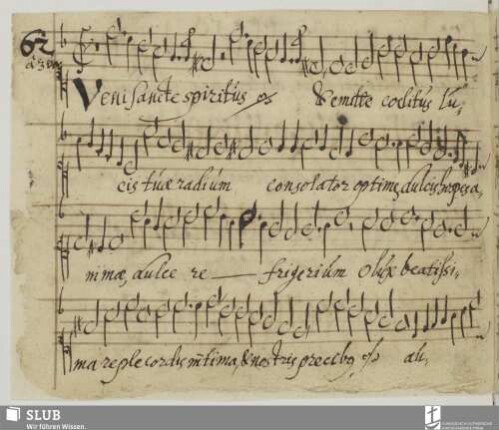 62
Veni sancte spiritus & emitte coelitus lu,
cis tuae radium consolator optime, dulcis hospes a,
nimae, dulce re frigerium O lux beatissi,
ma reple cordis intima, & nostris precibg
SLUB
Wir führen Wissen.